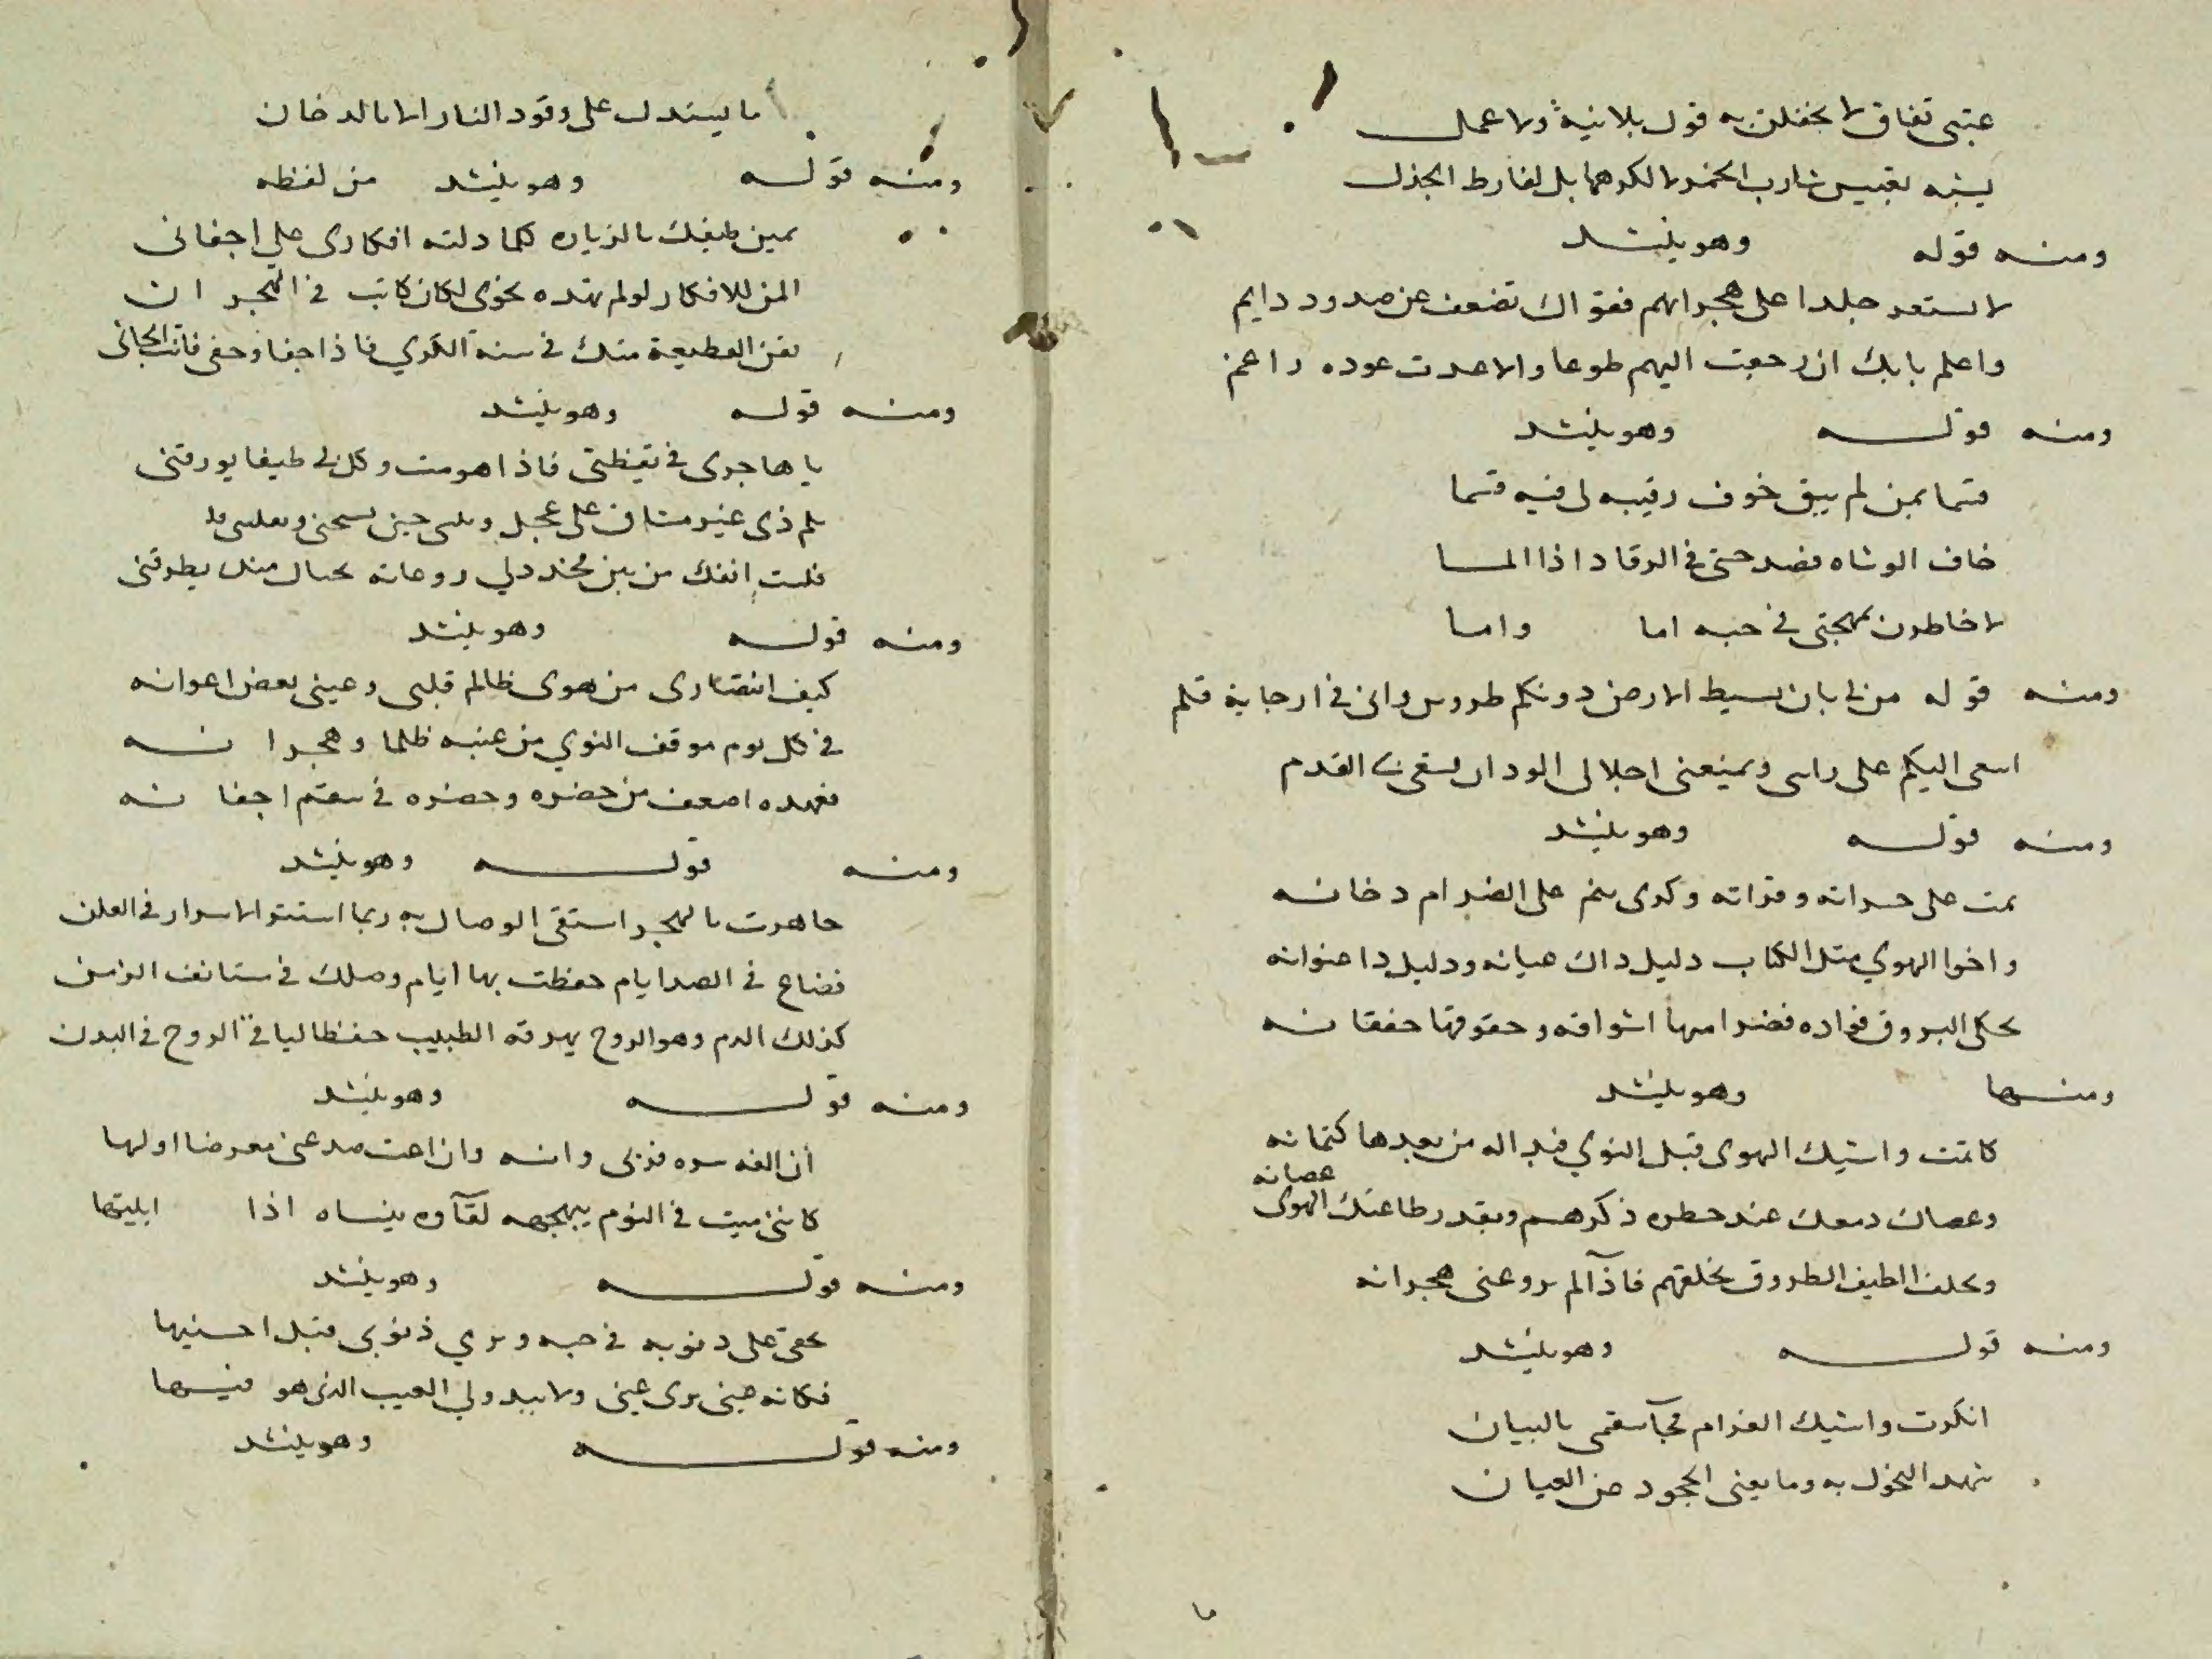 عتبى نفاق لا تحفلن به قول بلا نية ولا عمل
يشبه تعبيس شارب الخمر لا لكرهها بل لفارط الجذل
ومنه قوله وهو ينشد
لا تستعر جلدا على هجرانهم فقواك تضعف عن صدود دايم
واعلم بانك ان رجعت اليهم طوعا والا عدت عوده راغم
ومنه قوله وهو ينشد
قسما بمن لم يبق خوف رقيبه لى فيه قسما
خاف الوشاه فصد حتى فى الرقاد اذا الما
لاخاطرن بمهجتى فى حبه اما واما
ومنه قوله من لى بان بسيط الارض دونكم طروس وانى فى ارجايه قلم
اسعى اليكم على راسى ويمنعنى اجلالى الود ان يسعى بى القدم
ومنه قوله وهو ينشد
نمت على حسراته وفراته وكرى ينم على الضرام دخانه
واخوا الهوي مثل الكتاب دليل داك عيانه ودليل دا عنوانه
تحكى البروق فواده فضرامها اشواقه وخفوقها خفقانه
ومنها وهو ينشد
كاتمت واشيك الهوى قبل النوي فبدا له من بعدها كتمانه
وعصاك دمعك عند خطره ذكرهم وبقدر طاعتك الهوى عصيانه
الطيف الطروق بخلقهم فاذا الم يروعنى هجرانه
ومنه قوله وهو ينشد
انكرت واشيك الغرام فجآ سقمى بالبيان
شهد النحول به وما يغنى الجحود عن العيان
ما يستدل على وقود النار الا بالدخان
ومنه قوله وهو ينشد من لفظه
يمين طيفك بالزياره كلما دلته افكارى على اجفانى
المن للافكار لو لم تهده نحوى لكان كانت فى الهجران
القطيعة منك فى سنة الكري فاذا جفا وجفى فانت الجانى
ومنه قوله وهو ينشد
يا هاجرى فى يقظتى فاذا هومت وكل لى طيفا يورقنى
لم ذى غير مشتاق على عجل
فلست انفك من بين تحدد لي روعاته بخيال منك يطرقنى
ومنه قوله وهو ينشد
كيف انتصارى من هوى ظالم قلبى وعينى بعض اعوانه
فى كل يوم موقف النوي من عتبه ظلما وهجرانه
فعهده اضعف من خصره وخصره فى سقم اجفانه
ومنه قوله وهو ينشد
جاهرت بالهجر استقى الوصال به ربما استتر الاسرار فى العلن
فضاع فى الصد ايام حفظت بها ايام وصلك فى مستانف الزمن
كذلك الدم وهو الروح يهرقه الطبيب حفظا لباقى الروح فى البدن
ومنه قوله وهو ينشد
ان الفه سره قربى وانسه وان اغب صد عنى معرضا ولها
كاننى ميت فى النوم يبهجه لقآوه ينساه اذا
ومنه قوله وهو ينشد
يخفى على دنوبه فى حبه ويري ذنوبى قبل اجنيها
فكانه عينى يرى عيبى ولا يبدو لي العيب الذى هو فيها
ومنه قوله وهو ينشد